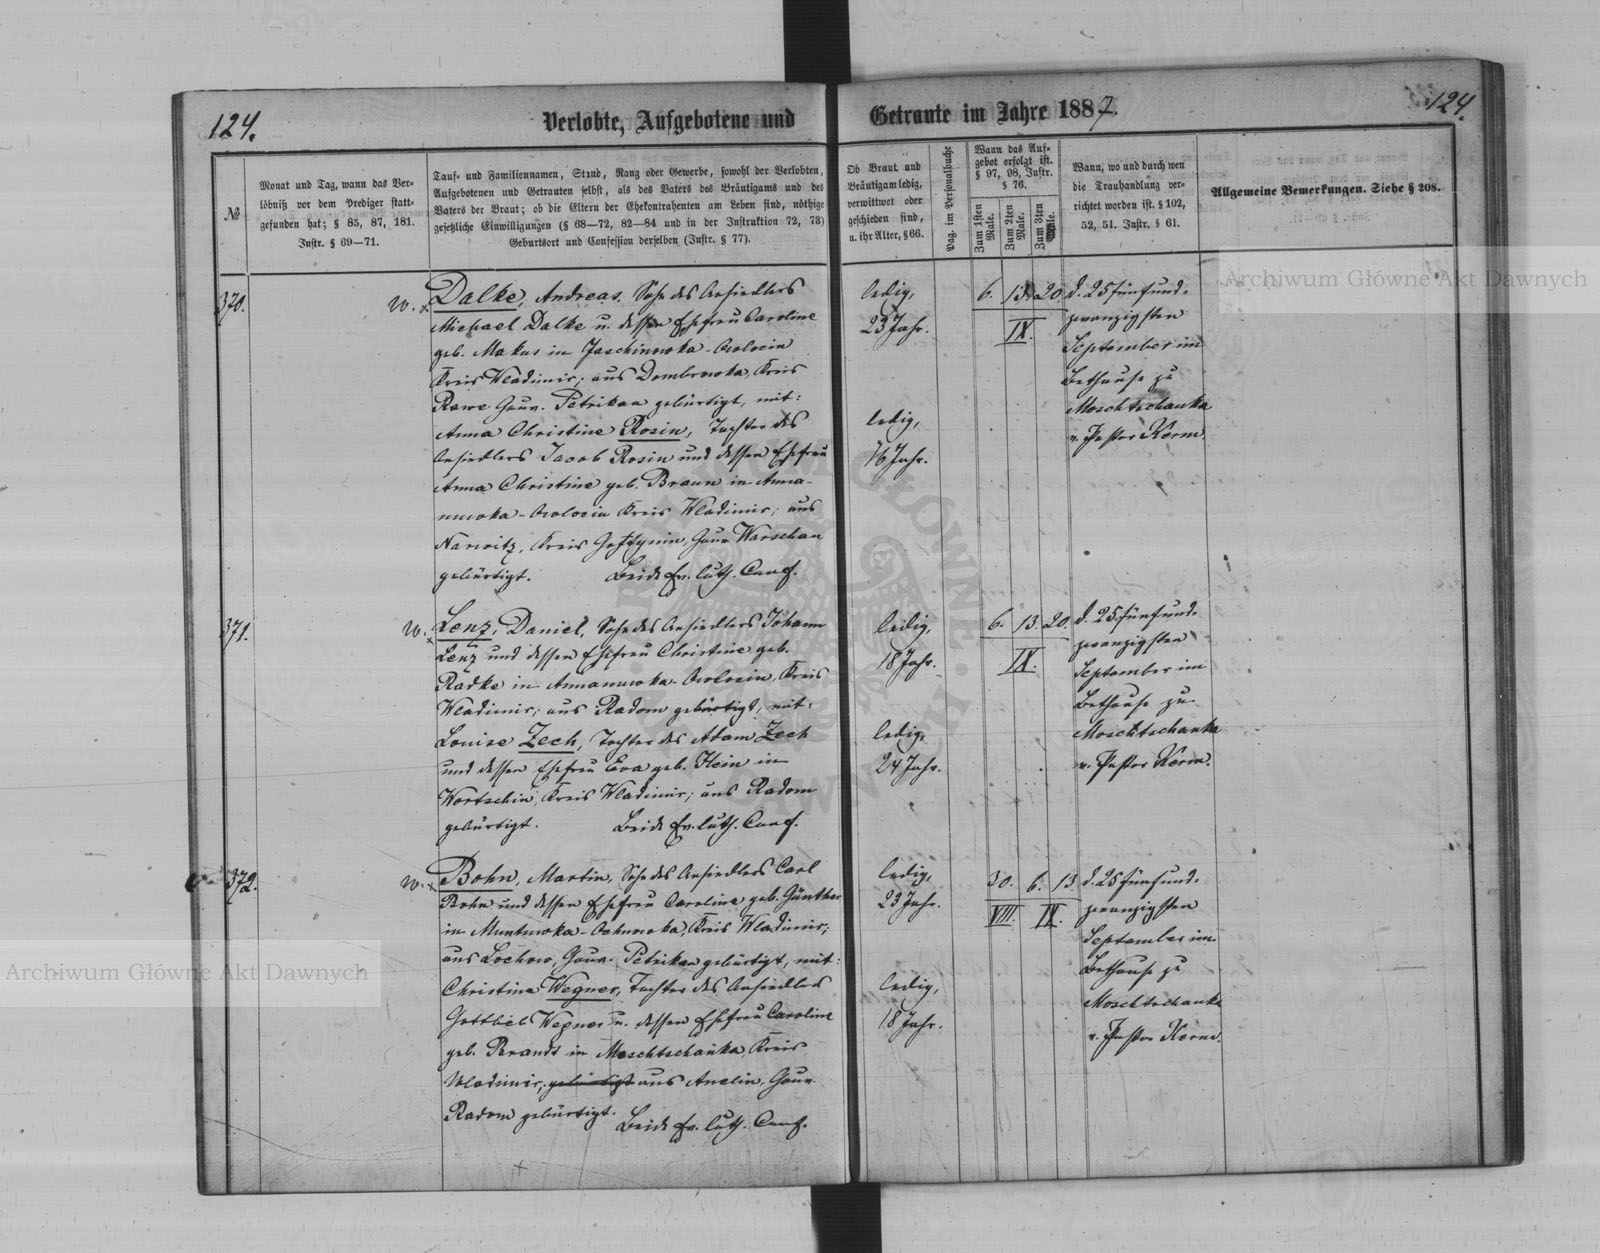 124.
Verlobte, Aufgebotene und
Getraute im Jahre 1887.
124.
№
Monat und Tag, wann das Ver-
löbniß vor dem Prediger statt-
gefunden hat; § 85, 87, 181.
Instr. § 69—71.
Tauf- und Familiennamen, Stand, Rang oder Gewerbe, sowohl der Verlobten,
Aufgebotenen und Getrauten selbst, als des Vaters des Bräutigams und des
Vaters der Braut; ob die Eltern der Ehekontrahenten am Leben sind, nöthige
gesetzliche Einwilligungen (§ 68—72, 82—84 und in der Instruktion 72, 73)
Geburtsort und Confession derselben (Instr. § 77).
Ob Braut und
Bräutigam ledig,
verwittwet oder
geschieden sind,
u. ihr Alter, § 66.
Pag. im Personalbuche
Wann das Auf-
gebot erfolgt ist.
§ 97, 98, Instr.
§ 76.
Zum 1sten
Male.
Zum 2ten
Male.
Zum 3ten
Male.
Wann, wo und durch wen
die Trauhandlung ver-
richtet worden ist. § 102,
52, 51. Instr. § 61.
Allgemeine Bemerkungen. Siehe § 208.
370.
w. x
Dalke, Andreas, Sohn des Ansiedlers
Michael Dalke u. dessen Ehefrau Caroline
geb. Makus in Jaschinowka-
Kreis Wladimir; aus Dombrowka, Kreis
Rawe Gouv. Petrikau gebürtigt, mit:
Anna Christine Rosin, Tochter des
Ansiedlers Jacob Rosin und dessen Ehefrau
Anna Christine geb. Braun in Anna-
nuwka- Kreis Wladimir; aus
Narwitz, Kreis Gostynin, Gouv Warschau
gebürtigt. Beide Ev. luth. Conf.
ledig,
23 Jahr.
ledig,
16 Jahr.
6. 13. 20.
IX.
d. 25 fünfund-
zwanzigsten
September im
Bethause zu
Moschtschanka
v. Pastor Kerm.
371.
w. x
Lenz, Daniel, Sohn des Ansiedlers Johann
Lenz und dessen Ehefrau Christine geb.
Radke in Annanuwka- Kreis
Wladimir; aus Radom gebürtigt, mit:
Louise Zech, Tochter des Adam Zech
und dessen Ehefrau Eva geb. Hein in
Wortschin, Kreis Wladimir; aus Radom
gebürtigt. Beide Ev. luth. Conf.
ledig,
18 Jahr.
ledig,
24 Jahr.
6. 13. 20.
IX.
d. 25 fünfund-
zwanzigsten
September im
Bethause zu
Moschtschanka
v. Pastor Kerm.
372.
w. x
Bohn, Martin, Sohn des Ansiedlers Carl
Bohn und dessen Ehefrau Caroline geb. Günther
in Kreis Wladimir;
aus Lochow, Gouv. Petrikau gebürtigt, mit:
Christine Wegner, Tochter des Ansiedlers
Gottlieb Wegner u. dessen Ehefrau Caroline
geb. Brandt in Moschtschanka, Kreis
Wladimir; gebürtigt aus Anelin, Gouv.
Radom gebürtigt. Beide Ev. luth. Conf.
ledig,
23 Jahr.
ledig,
18 Jahr.
30. 6. 13.
VIII. IX.
d. 25 fünfund-
zwanzigsten
September im
Bethause zu
Moschtschanka
v. Pastor Kerm.
Archiwum Główne Akt Dawnych
Archiwum Główne Akt Dawnych